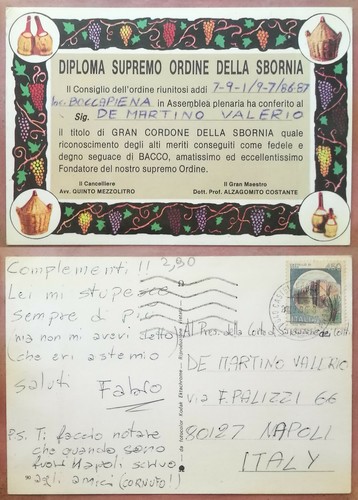 DIPLOMA SUPREMO ORDINE DELLA SBORNIA
Il Consiglio dell'ordine riunitosi addì 7-9-1/9-7/86.87
loc. BOCCAPIENA in Assemblea plenaria ha conferito al
Sig. DE MARTINO VALERIO
il titolo di GRAN CORDONE DELLA SBORNIA quale
riconoscimento degli alti meriti conseguiti come fedele e
degno seguace di BACCO, amatissimo ed eccellentissimo
Fondatore del nostro supremo Ordine.
Il Cancelliere
Avv. QUINTO MEZZOLITRO
Il Gran Maestro
Dott. Prof. ALZAGOMITO COSTANTE
2,50
Complementi!!
Lei mi stupesce
sempre di più
ma non mi avevi detto
che eri astemio
Saluti
Fabio
P.S. Ti faccio notare
che quando sono
fuori Napoli scrivo
agli amici (CORNUTO!)
450
ITALIA
Al Pres. della Corte d.
DE MARTINO VALERIO
via F. PALIZZI 66
80127 NAPOLI
ITALY
da fotocolor Kodak Ektachrome